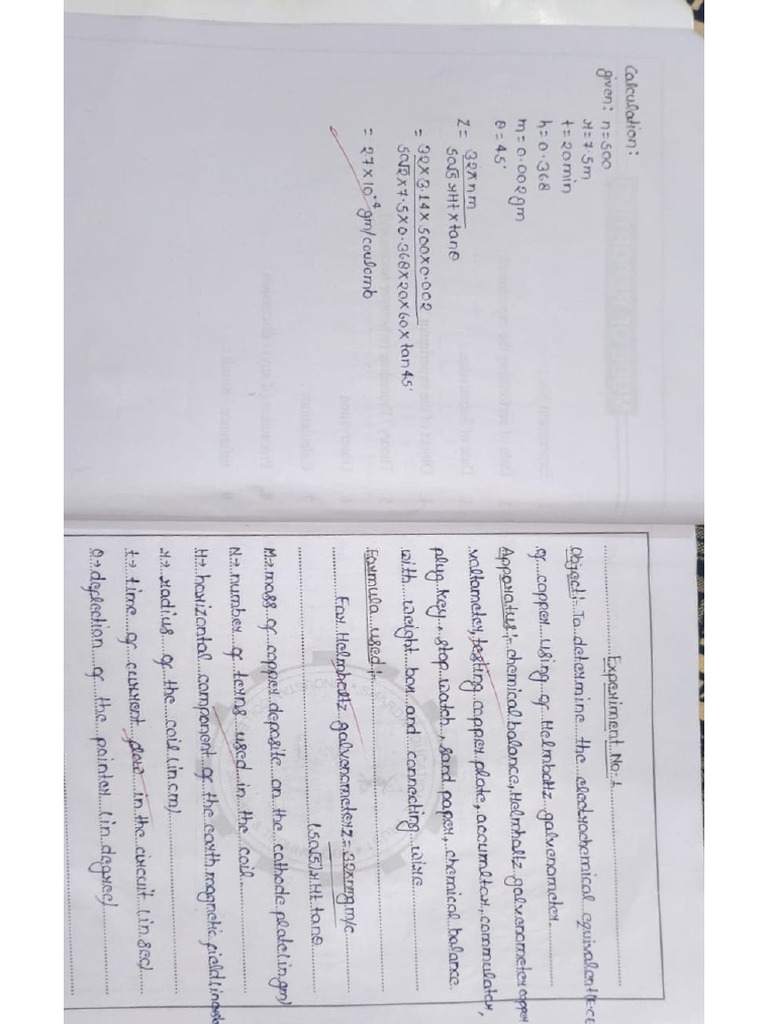 Calculation:
given: n=500
r=7.5m
t=20min
h=0.368
m=0.002gm
θ=45°
Z= 32πnm
50√5 rHt×tanθ
= 32×3.14×500×0.002
50√2×7.5×0.368×20×60×tan45°
= 27×10⁻⁴ gm/coulomb
Experiment No:1
Object:- To determine the electrochemical equivalent (E.C.E
of copper using of Helmboltz galvenometer.
Apparatus:- chemical balance, Helmholtz galvenometer copper
voltameter, testing copper plate, accumaltor, commulator,
plug key, stop watch, sand paper, chemical balance
with weight box and connecting wire
Formula used:-
For Helmholtz galvenometer z= 32πng m/c
(50√5) r Ht tanθ
M→ mass of copper deposite on the cathode plate (in gm)
N→ number of terns used in the coil.
H→ horizontal component of the earth magnetic field (in
r→ radius of the coil (in cm)
t→ time of current flow in the circuit (in sec)
θ→ deflection of the pointer (in degree)